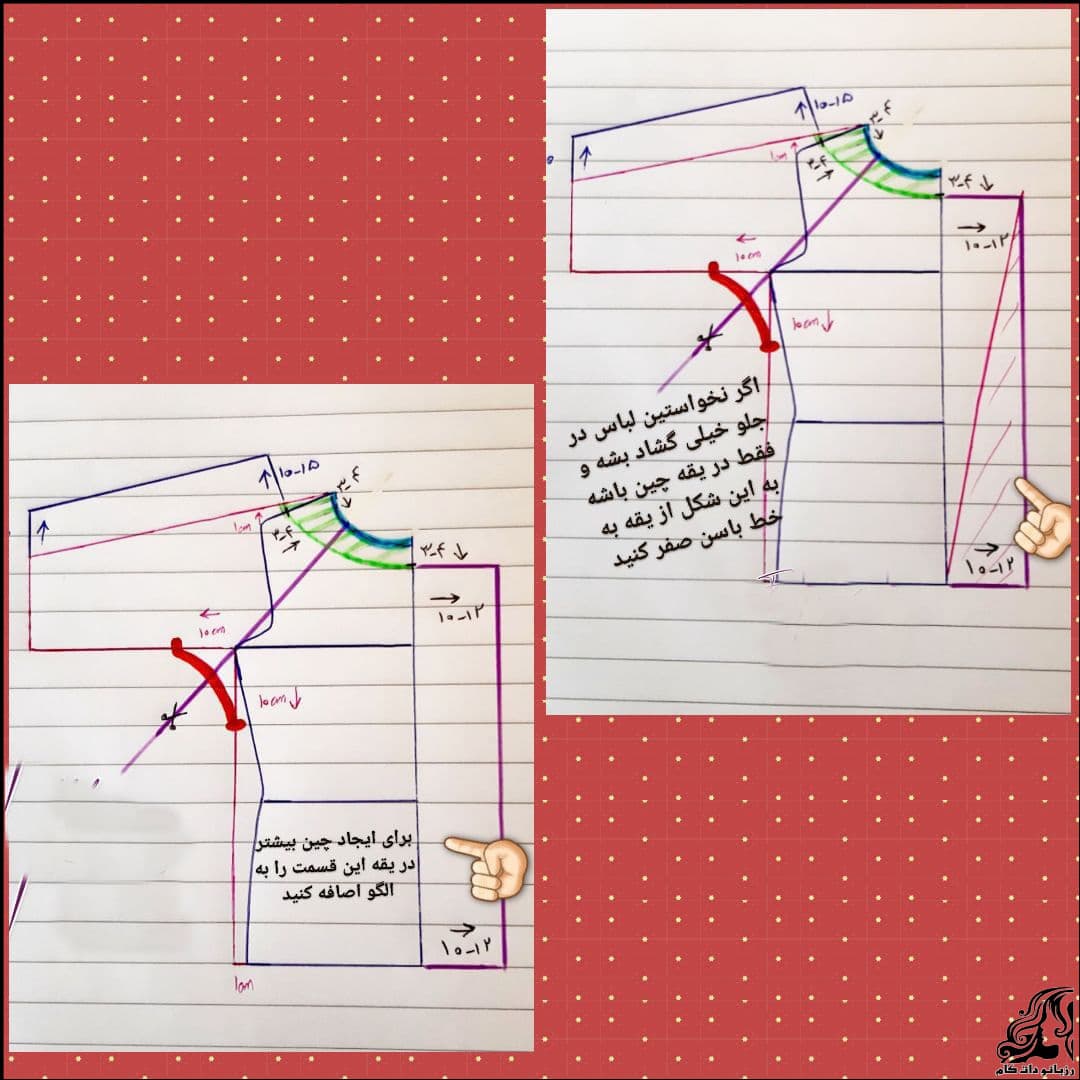 ۱۰-۱۵
۳-۴
1cm
۳-۴
۳-۴
۱۰-۱۲
10cm
10cm
اگر نخواستین لباس در
جلو خیلی گشاد بشه و
فقط در یقه چین باشه
به این شکل از یقه به
خط باسن صفر کنید
۱۰-۱۲
۱۰-۱۵
۳-۴
1cm
۳-۴
۳-۴
۱۰-۱۲
10cm
10cm
برای ایجاد چین بیشتر
در یقه این قسمت را به
الگو اصافه کنید
۱۰-۱۲
1cm
رزبانو دات کام